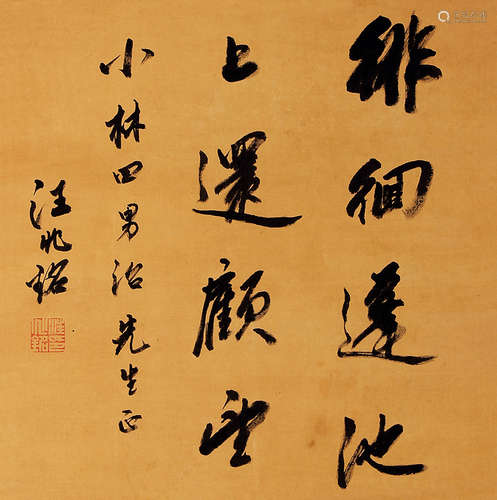 徘徊蓬池
上還顧望
小林四男治先生正
汪兆銘